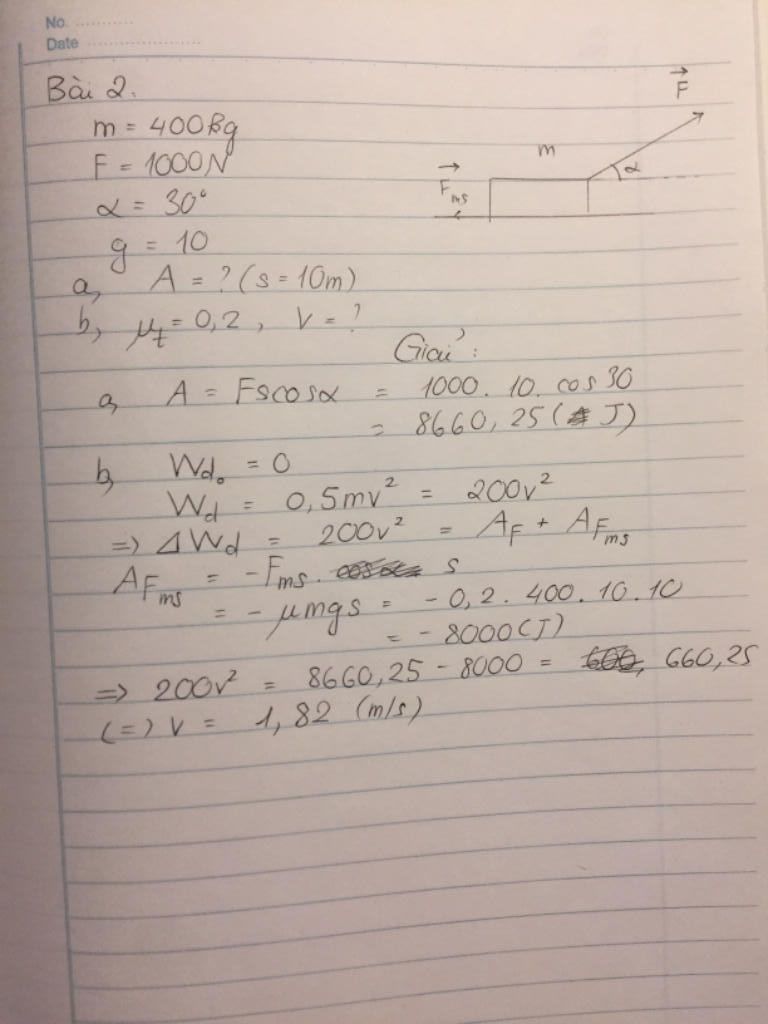 No.
Date
Bài 2.
m = 400kg
F = 1000N
α = 30°
g = 10
a, A = ? (s = 10m)
b, μt = 0,2 , V = ?
F
m
α
Fms
Giải :
a, A = Fscosα = 1000. 10. cos 30
= 8660, 25 ( J)
b, Wđ₀ = 0
Wđ = 0,5mv² = 200v²
=> ΔWđ = 200v² = A_F + A_Fms
A_Fms = - Fms. s
= - μmgs = - 0,2. 400. 10. 10
= - 8000(J)
=> 200v² = 8660,25 - 8000 = 660,25
(=) V = 1,82 (m/s)